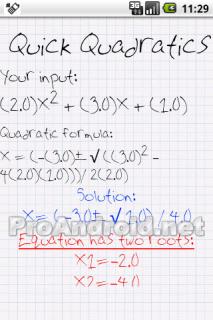 11:29
Quick Quadratics
Your input:
(2.0)x² + (3.0)x + (1.0)
Quadratic formula:
x = (-(3.0)± √((3.0)² -
4(2.0)(1.0)))/2(2.0)
Solution:
x = (-3.0± √1.0) / 4.0
ProAndroid.net
Equation has two roots:
x1=-2.0
x2=-4.0